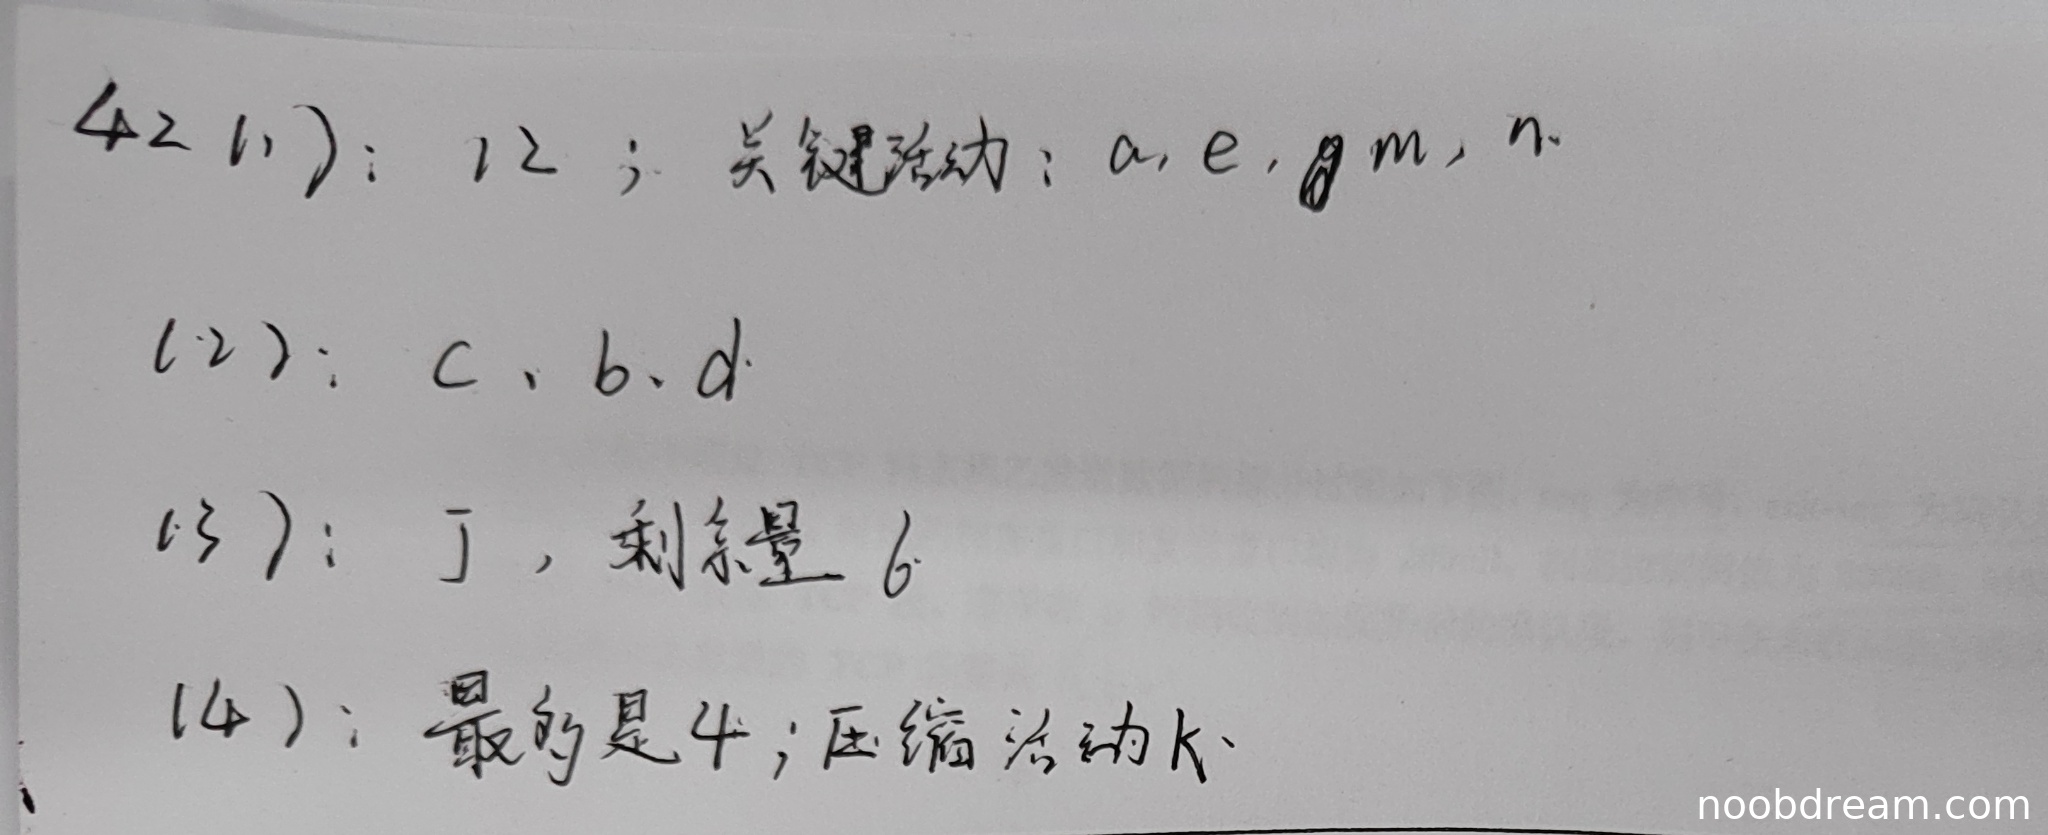 42(1)： 12 ； 关键活动：a，e，g m，n.
(2)： c、b、d.
(3)： J，剩余量 6
(4)：最的是4；压缩活动k、
noobdream.com